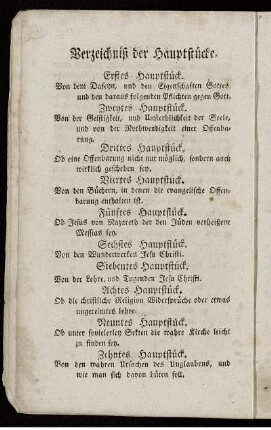 Verzeichniß der Hauptstücke.
Erstes Hauptstück.
Von dem Daseyn, und den Eigenschaften Gottes,
und den daraus folgenden Pflichten gegen Gott.
Zweytes Hauptstück.
Von der Geistigkeit, und Unsterblichkeit der Seele,
und von der Nothwendigkeit einer Offenba-
rung.
Drittes Hauptstück.
Ob eine Offenbarung nicht nur möglich, sondern auch
wirklich geschehen sey.
Viertes Hauptstück.
Von den Büchern, in denen die evangelische Offen-
barung enthalten ist.
Fünftes Hauptstück.
Ob Jesus von Nazareth der den Jüden verheißene
Messias sey.
Sechstes Hauptstück.
Von den Wunderwerken Jesu Christi.
Siebentes Hauptstück.
Von der Lehre, und Tugenden Jesu Christi.
Achtes Hauptstück.
Ob die christliche Religion Widersprüche oder etwas
ungereimtes lehre.
Neuntes Hauptstück.
Ob unter sovielerley Sekten die wahre Kirche leicht
zu finden sey.
Zehntes Hauptstück.
Von den wahren Ursachen des Unglaubens, und
wie man sich davon hüten soll.